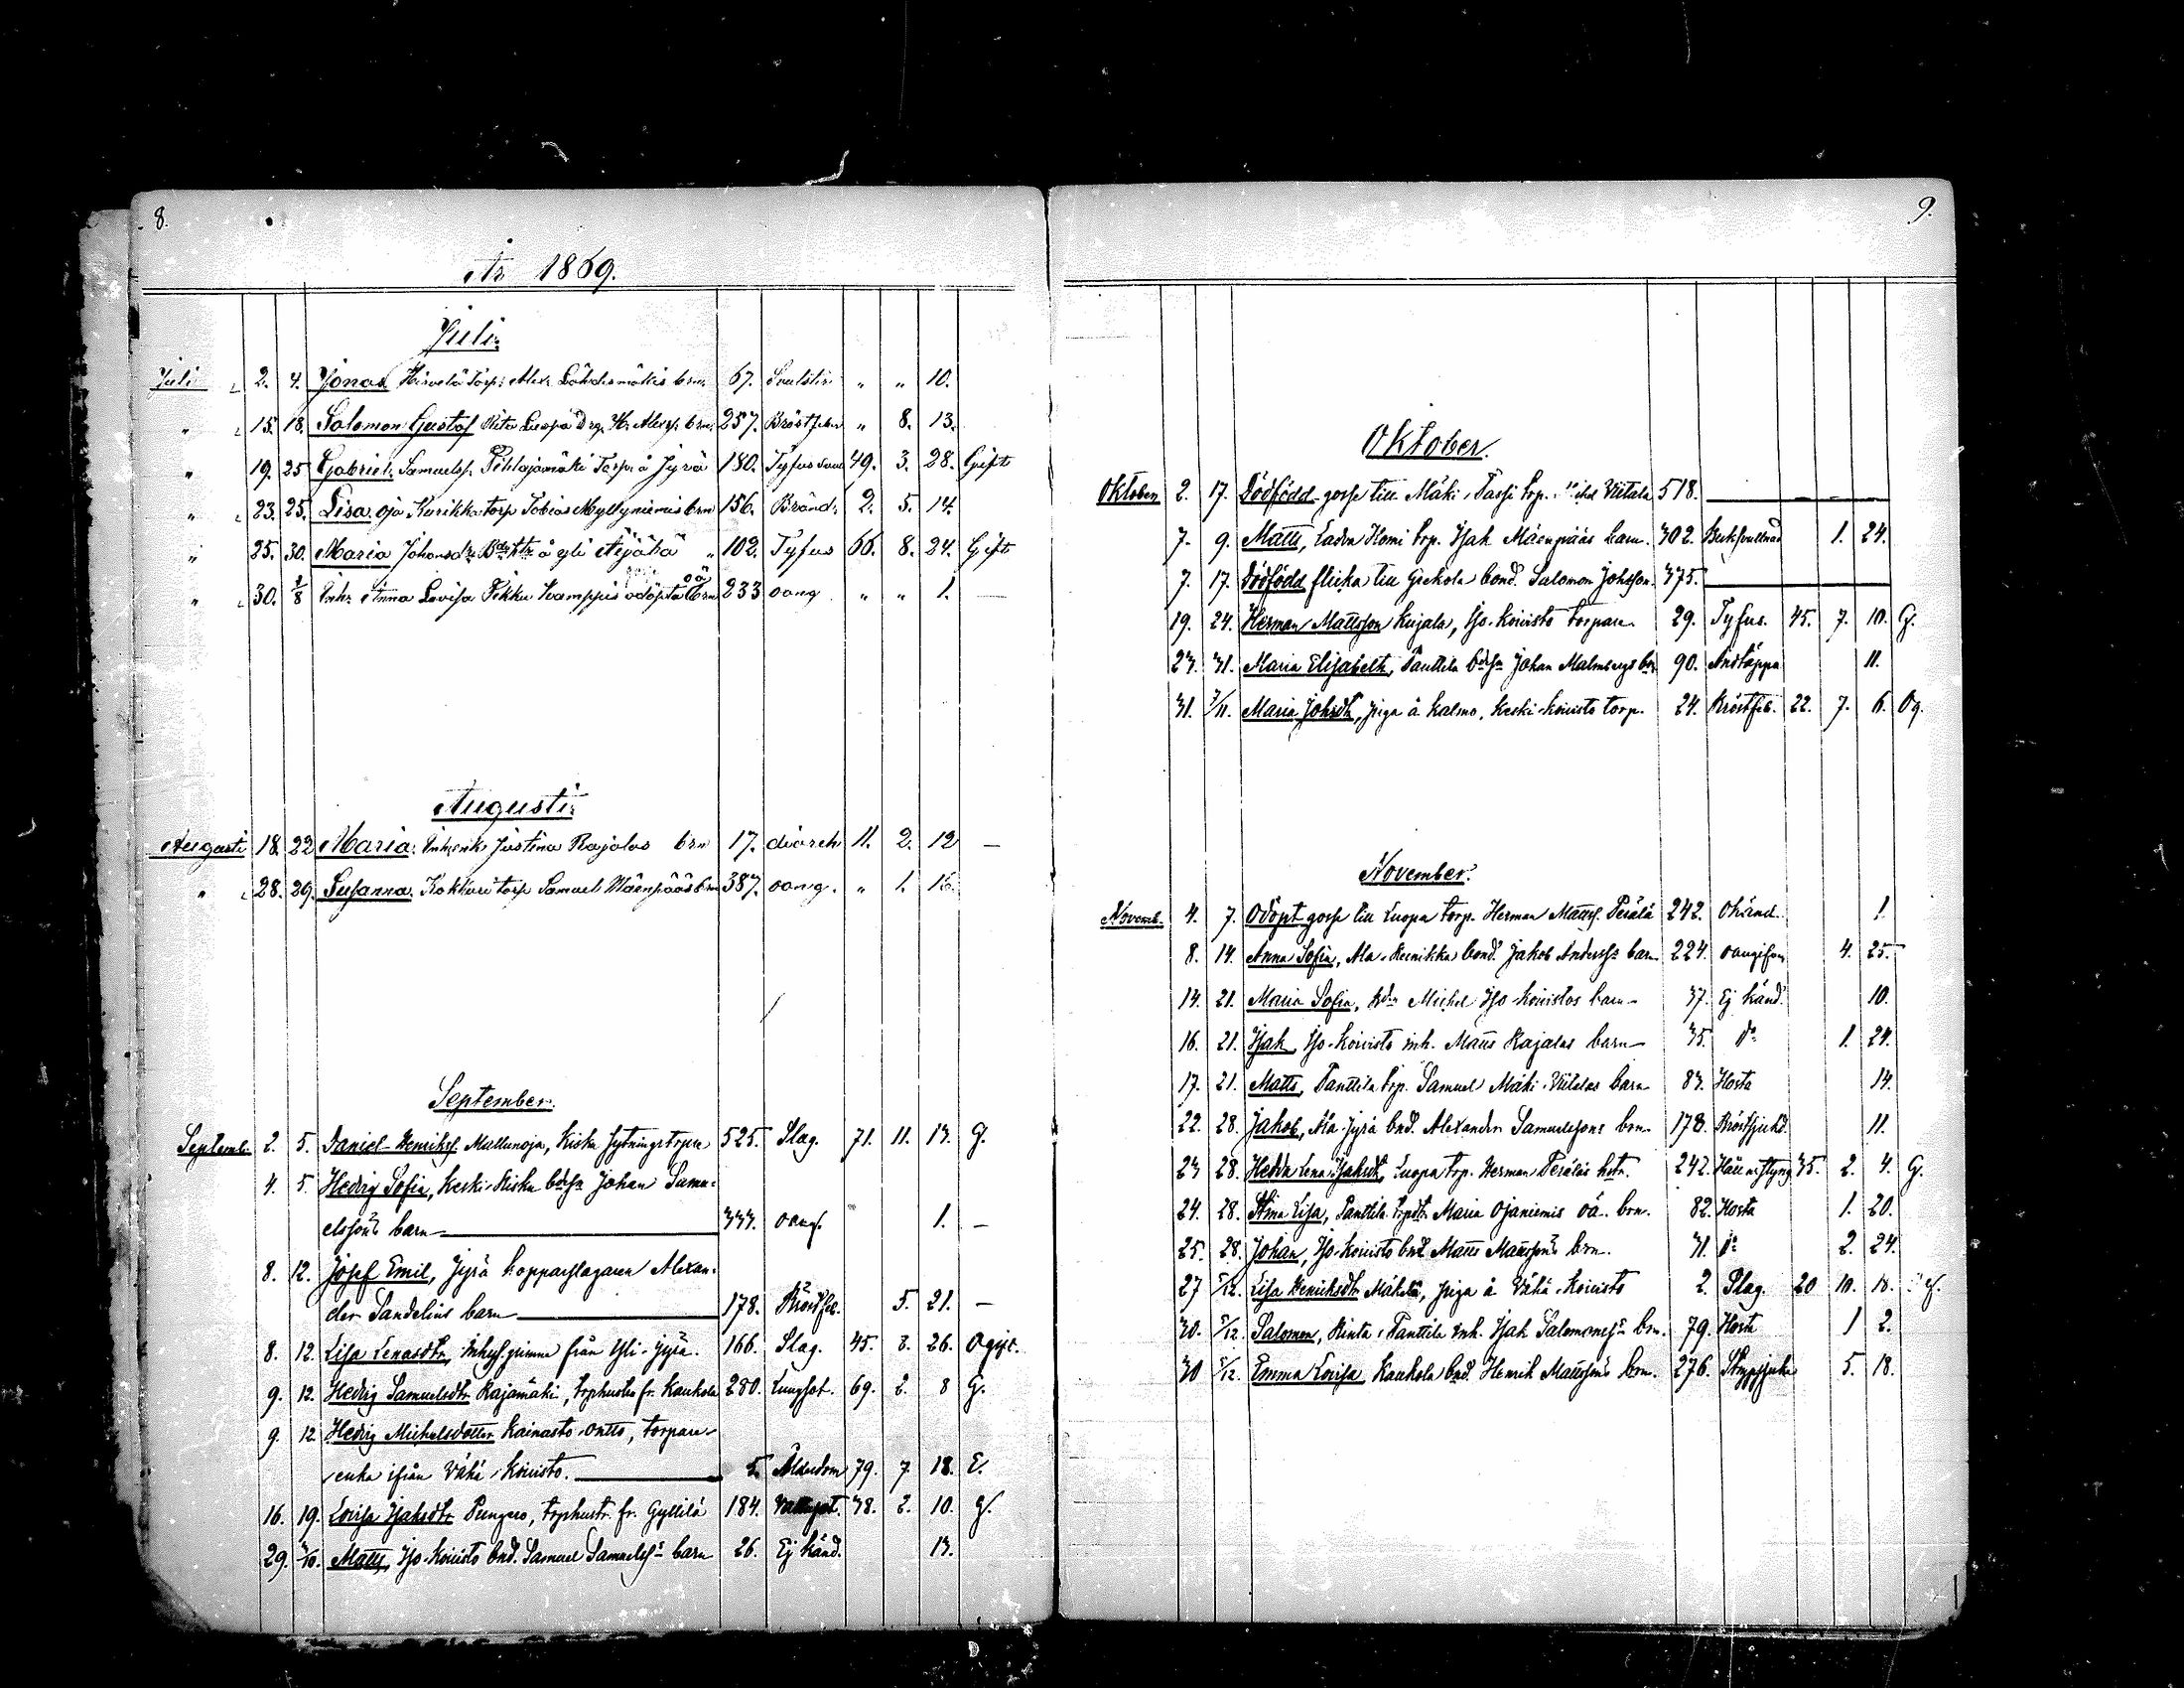 8.
År 1869.
Juli
Juli 2. 4. Jonas Hirvelä Torp. Alex. Lähdesmäkis brn. 67. " " 10.
" 15. 18. Salomon Gustaf Luopa 257. Bröstfeber " 8. 13.
" 19. 25 Gabriel Samuelss. Pihlajamäki Torp. å Jyrä 180. Tyfus 49. 3. 28. Gift
" 23. 25. Lisa Kurikka torp Tobias Myllyniemis brn 156. Bränd. 2. 5. 14.
" 25. 30. Maria Johansdr å yli Äijälä " 102. Tyfus 66. 8. 24. Gift
" 30. 1/8 Inh. Anna Lovisa Pikku Kamppis odöpta oä brn 233 oang " " 1. —
Augusti
Augusti 18. 22 Maria Inh.enk. Justina Rajalas brn 17. diarrh 11. 2. 12 —
" 28. 29. Susanna. Kokkari torp Samuel Mäenpääs brn 387. oang. " 1. 16.
September
Septemb. 2. 5. Daniel Henrikss. Mallunoja, Kisku 525. Slag. 71. 11. 13. G.
4. 5. Hedvig Sofia, Keski-Kisku Johan Samu-
elssons barn 333. oang. 1. —
8. 12. Josef Emil, Jyrä kopparslagaren Alexan-
der Sandelius barn 178. Bröstfeb. 5. 21. —
8. 12. Lisa Lenasdtr, från Yli-Jyrä. 166. Slag. 45. 8. 26. Ogift.
9. 12. Hedvig Samuelsdtr Rajamäki, torphustru fr. Kaukola 280. Lungsot. 69. 2. 8 G.
9. 12 Hedvig Michelsdotter Kainasto-Ontto, torpare-
enka ifrån Vähä-Koivisto. 5. Ålderdom 79. 7. 18. E.
16. 19. Lovisa Isaksdtr Pungus, torphustr. fr. Gyllilä 184. Vattusot. 38. 2. 10. G.
29. 3/10. Matts, Iso-Koivisto bnd. Samuel Samuelss:s barn 26. Ej känd. 13.
9.
Oktober.
Oktober 2. 17. Dödfödd gosse till Mäki-Passi trp. Viitala 518.
7. 9. Matts, torp. Isak Mäenpääs barn. 302. 1. 24.
7. 17. Dödfödd flicka till Jickola bond. Salomon Johsson. 375.
19. 24. Herman Mattsson Kujala, Iso-Koivisto torpare. 29. Tyfus. 45. 7. 10. G.
23. 31. Maria Elisabeth, Panttila Johan Malmbergs brn 90. Andtäppa 11.
31. 7/11. Maria Johsdtr, piga å Kalmo, Keski-Koivisto torp. 24. Bröstfeb. 22. 7. 6. Og.
November.
Novemb. 4. 7. Odöpt gosse till Luopa torp. Herman Mattss. Perälä 242. Okänd. 1
8. 14. Anna Sofia, Ala-Reinikka bond. Jakob Anderss:s barn 224. oangifven 4. 25.
14. 21. Maria Sofia, Michel Iso-Koivistos barn 37. Ej känd. 10.
16. 21. Isak, Iso-Koivisto inh. Matts Rajalas barn 35. do 1. 24.
17. 21. Matts, Panttila trp. Samuel Mäki-Viitalas barn 83. Hosta 14.
22. 28. Jakob, Ala-Jyrä bnd. Alexander Samuelssons brn. 178. Bröstsjukd. 11.
23 28. Hedda Lena Isaksdtr, Luopa trp. Herman Peräläs hstr. 242. Håll o. styng 35. 2. 4. G.
24. 28. Stina Lisa, Panttila Maria Ojaniemis oä. brn. 82. Hosta 1. 20.
25. 28. Johan, Iso-Koivisto bnd Matts Mattssons brn. 31. do 2. 24.
27 5/12. Lisa Henriksdtr Mäkelä, piga å Vähä-Koivisto 2. Slag. 20 10. 18.
30. 5/12. Salomon, Rinta-Panttila inh. Isak Salomonss:s brn. 79. Hosta 1 2.
30 5/12. Emma Lovisa Kaukola bnd. Henrik Mattssons brn. 276. Strypsjuka 5. 18.